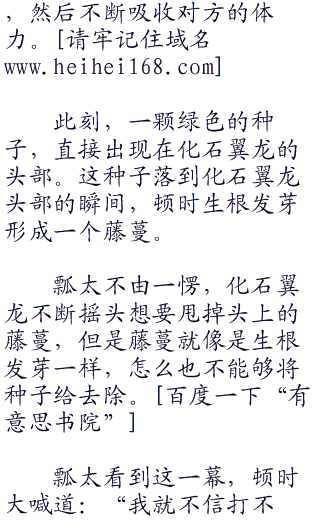 ，然后不断吸收对方的体
力。[请牢记住域名
www.heihei168.com]
此刻，一颗绿色的种
子，直接出现在化石翼龙的
头部。这种子落到化石翼龙
头部的瞬间，顿时生根发芽
形成一个藤蔓。
瓢太不由一愣，化石翼
龙不断摇头想要甩掉头上的
藤蔓，但是藤蔓就像是生根
发芽一样，怎么也不能够将
种子给去除。[百度一下“有
意思书院”]
瓢太看到这一幕，顿时
大喊道：“我就不信打不